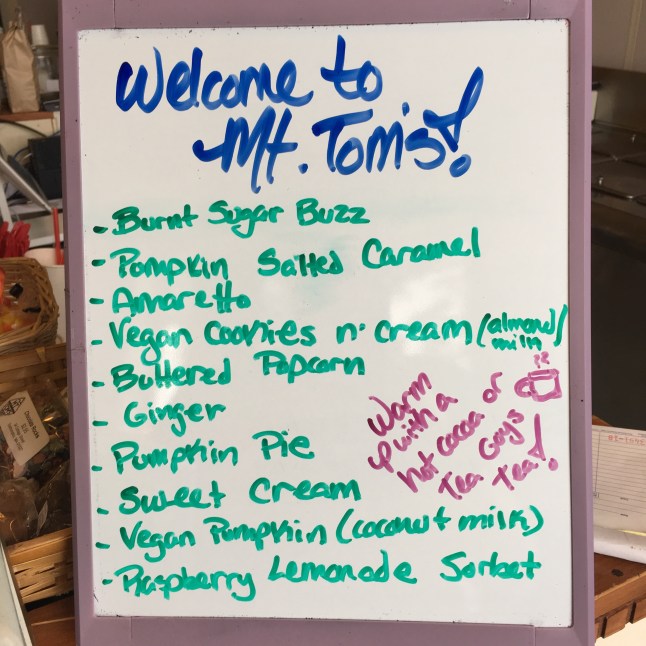 Welcome to
Mt. Tom's!
- Burnt Sugar Buzz
- Pompkin Salted Caramel
- Amaretto
- Vegan Cookies n' cream (almond milk)
- Buttered Popcorn
- Ginger
- Pumpkin Pie
- Sweet Cream
- Vegan Pumpkin (coconut milk)
- Raspberry Lemonade Sorbet
Warm
up with a
hot cocoa or
Tea Guys
Tea!